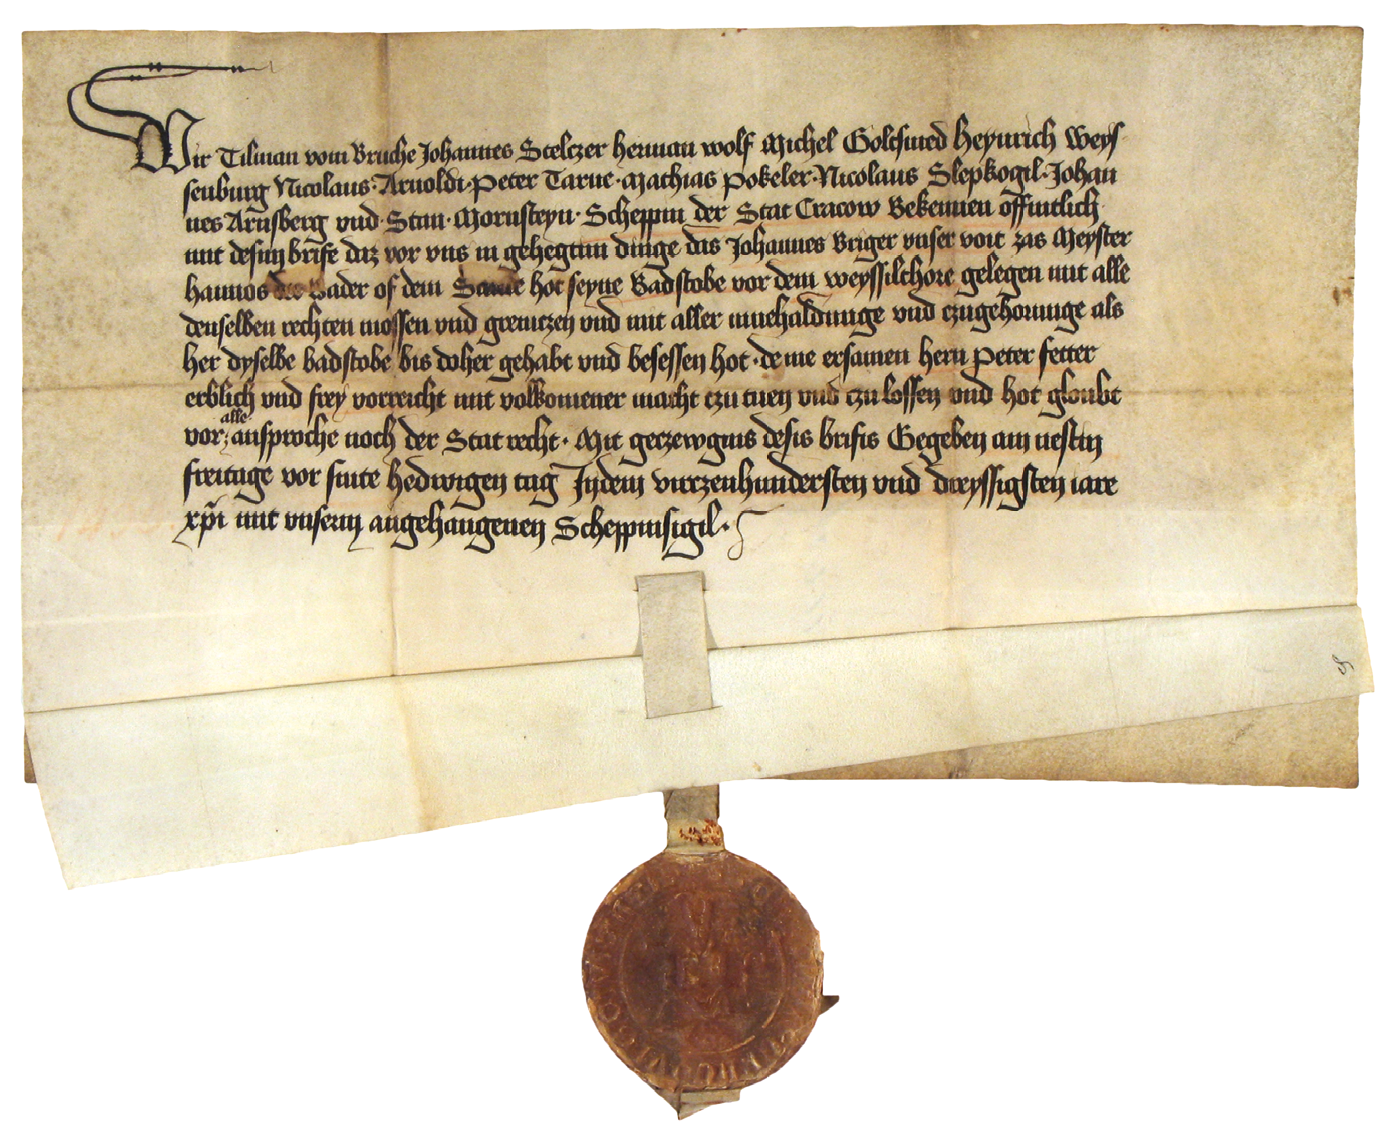 Wir Tilman vom Bruche Johannes Stelczer herman wolf Michel Goltsmed Heynrich Weys
senburg Nicolaus · Arnoldi · Peter Tarne · Mathias pokeler · Nicolaus Slepkogil · Johan
nes Arnsberg vnd · Stan · Mornsteyn · Scheppin der Stat Cracow Bekennen offintlich
mit desim brife daz vor vns in gehegtim dinge das Johannes Briger vnser voit zas Meyster
hannos der Bader of dem Sande hot seyne Badstobe vor dem weyssilthore gelegen mit alle
denselben rechten mossen vnd grenitczen vnd mit aller innehaldunge vnd czugehorunge als
her dyselbe badstobe bis doher gehabt vnd besessen hot · deme ersamen hern peter fetter
erblich vnd frey vorreicht mit volkomener macht czu tuen vnd czu lossen vnd hot gloubt
vor alle ansproche noch der Stat recht · Mit geczewgnis desis brifis Gegeben am nestin
freitage vor sinte hedwigen tag Indem virczenhundersten vnd dreyssigsten iare
xpi mit vnserm angehangenen Scheppinsigil ·